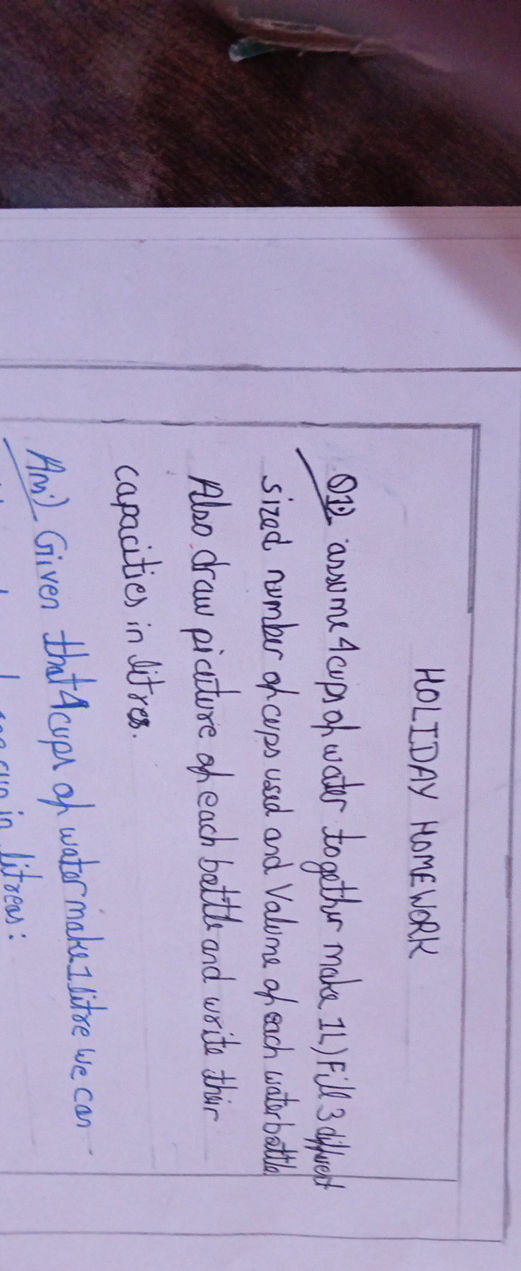 HOLIDAY HOMEWORK
Q1) assume 4 cups of water together make 1L) Fill 3 different
sized number of cups used and Valume of each water bottle
Also draw picuture of each bottle and write their
capacities in litres.
Ans) Given that 4 cups of water make 1 litre we can
cup in litreas: